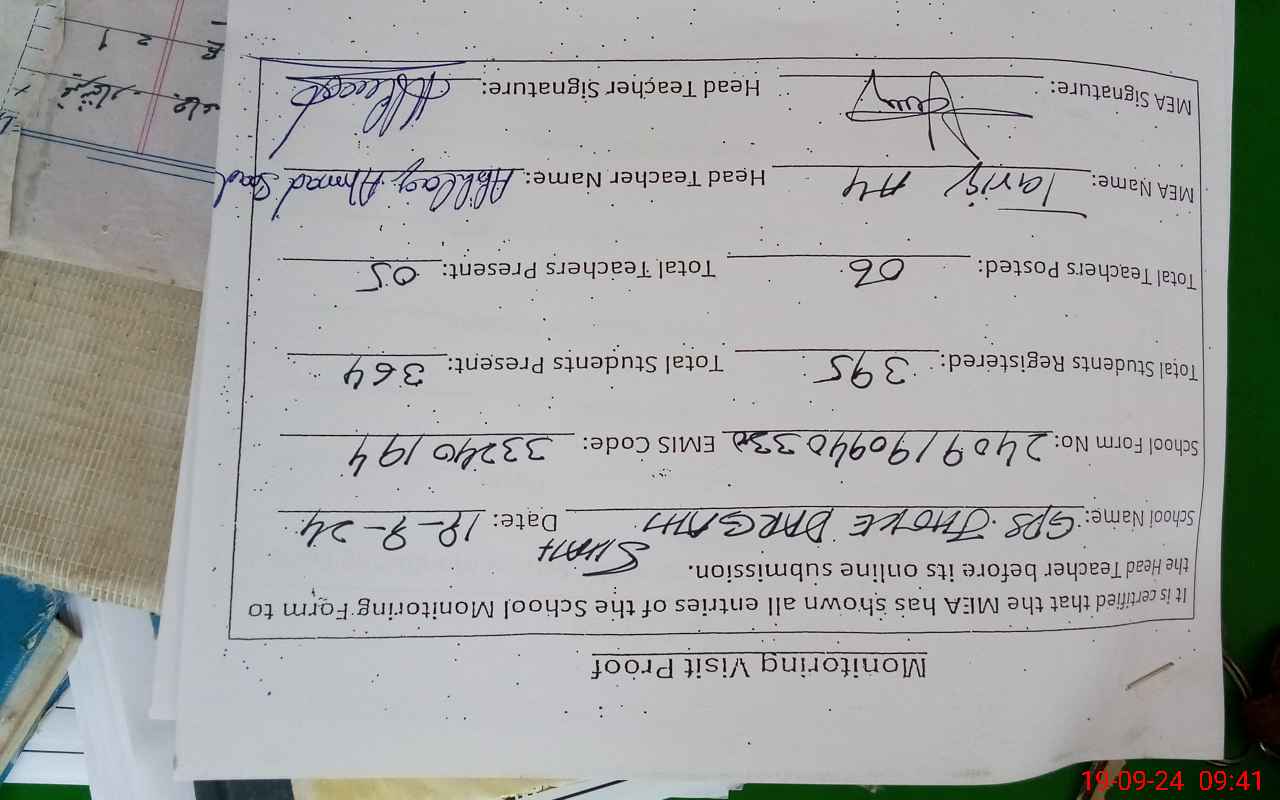 Monitoring Visit Proof
It is certified that the MEA has shown all entries of the School Monitoring Form to
the Head Teacher before its online submission.
School Name: GPS JHOKE DARGAHI SHAH Date: 19-9-24
School Form No: EMIS Code: 33240194
Total Students Registered: 395 Total Students Present: 364
Total Teachers Posted: 06 Total Teachers Present: 05
MEA Name: Tariq Aly Head Teacher Name: Ahmad
MEA Signature: Head Teacher Signature:
19-09-24 09:41